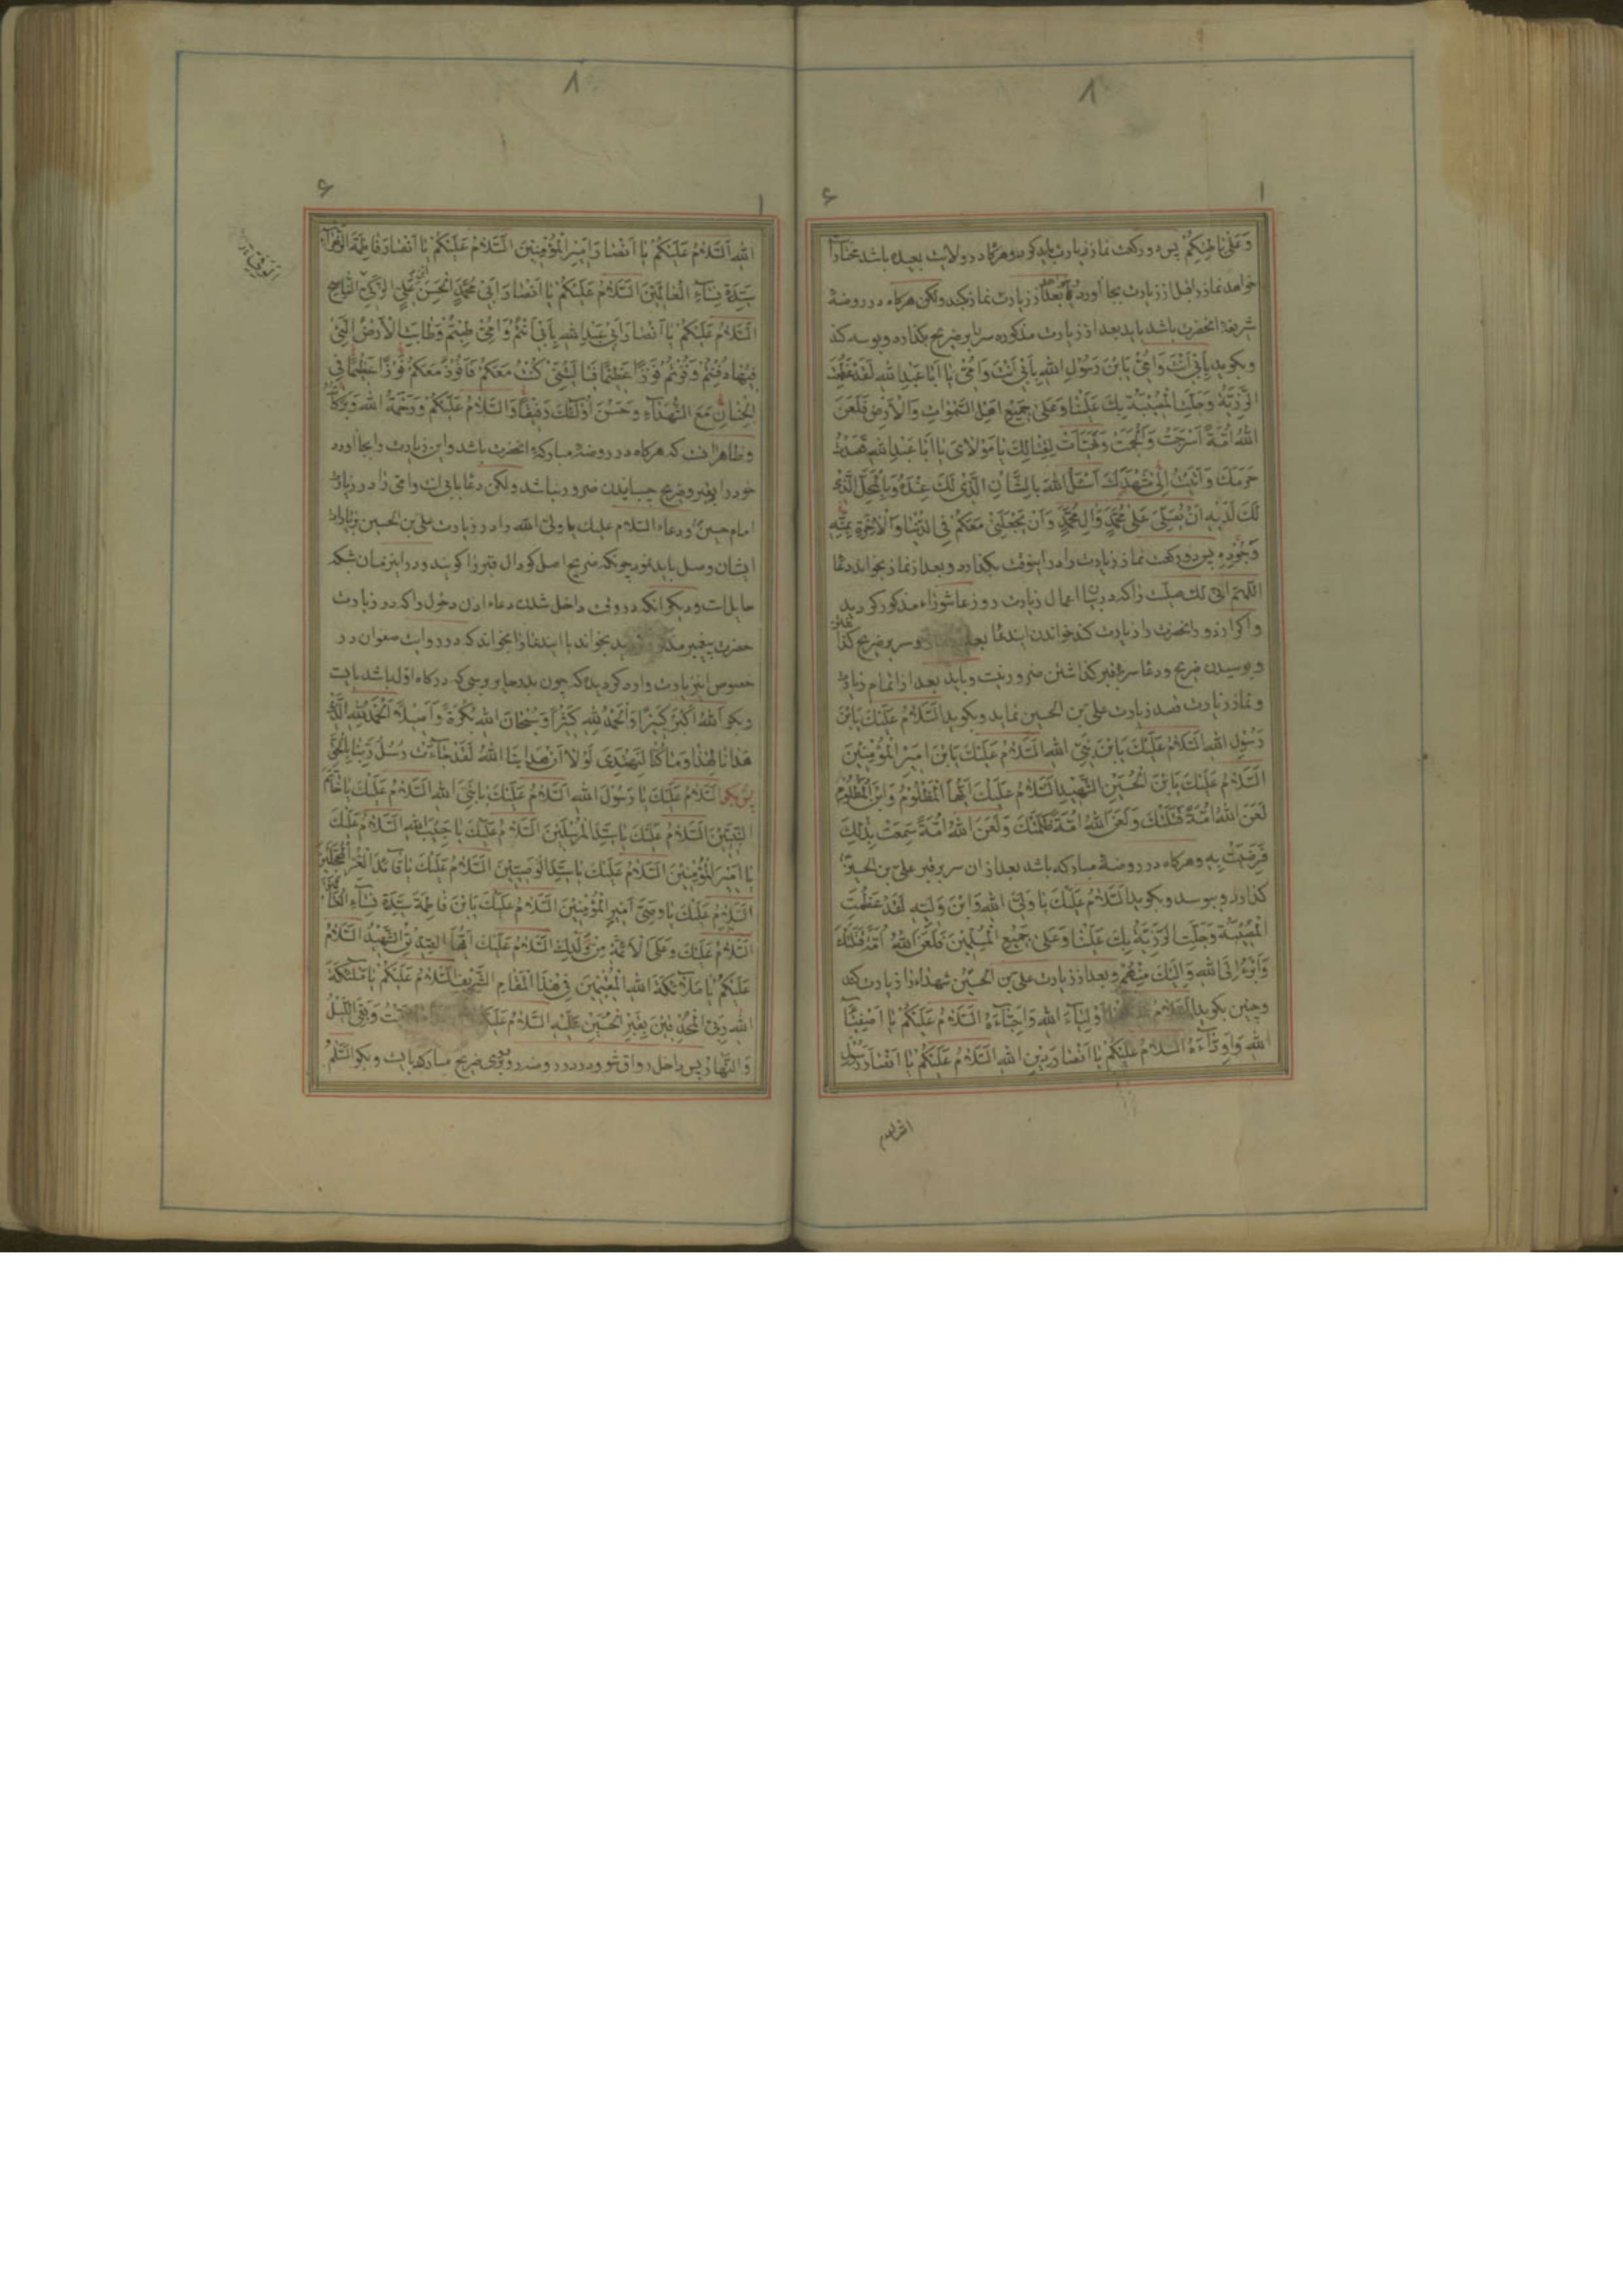 وَعَلیٰ بٰاطِنِکُمْ پس دو رکعت نماز زیارت باید کرد و هرگاه در ولایت بعیده باشد مختار
خواهد نماز را قبل از زیارت بجا آورد بعد از زیارت نماز کند ولکن هرگاه در روضهٔ
شریفهٔ آنحضرت باشد باید بعد از زیارت مذکوره سر را بر ضریح بگذارد و بوسه کند
و بگوید بِاَبی اَنْتَ وَاُمّی یَابْنَ رَسُولِ اللهِ بِاَبی اَنْتَ وَاُمّی یٰا اَبٰا عَبْدِ اللهِ لَقَدْ عَظُمَتِ
الرَّزِیَّةُ وَجَلَّتِ الْمُصیبَةُ بِکَ عَلَیْنٰا وَعَلیٰ جَمیعِ اَهْلِ السَّمٰوٰاتِ وَالْاَرْضِ فَلَعَنَ
اللهُ اُمَّةً اَسْرَجَتْ وَاَلْجَمَتْ وَتَهَیَّاَتْ لِقِتٰالِکَ یٰا مَوْلٰایَ یٰا اَبٰا عَبْدِ اللهِ قَصَدْتُ
حَرَمَکَ وَاَتَیْتُ اِلیٰ مَشْهَدِکَ اَسْئَلُ اللهَ بِالشَّأْنِ الَّذی لَکَ عِنْدَهُ وَبِالْمَحَلِّ الَّذی
لَکَ لَدَیْهِ اَنْ یُصَلِّیَ عَلیٰ مُحَمَّدٍ وَاٰلِ مُحَمَّدٍ وَاَنْ یَجْعَلَنی مَعَکُمْ فِی الدُّنْیٰا وَالْاٰخِرَةِ بِمَنِّهِ
وَجُودِهِ پس دو رکعت نماز زیارت را در اینوقت بگذارد و بعد از نماز بخواند دعا
اللّهمّ انّی لک صلّیت را که در بیان اعمال زیارت روز عاشورا مذکور گردید
و اگر از دور آنحضرت را زیارت کند خواندن ایندعا بعد و سر بر ضریح
و بوسیدن ضریح و دعا سر بر قبر گذاشتن ضرور نیست و باید بعد از اتمام زیارت
و نماز زیارت قصد زیارت علی بن الحسین نماید و بگوید اَلسَّلٰامُ عَلَیْکَ یَابْنَ
رَسُولِ اللهِ اَلسَّلٰامُ عَلَیْکَ یَابْنَ نَبِیِّ اللهِ اَلسَّلٰامُ عَلَیْکَ یَابْنَ اَمیرِ الْمُؤْمِنینَ
اَلسَّلٰامُ عَلَیْکَ یَابْنَ الْحُسَیْنِ الشَّهیدِ اَلسَّلٰامُ عَلَیْکَ اَیُّهَا الْمَظْلُومُ وَابْنُ الْمَظْلُومِ
لَعَنَ اللهُ اُمَّةً قَتَلَتْکَ وَلَعَنَ اللهُ اُمَّةً ظَلَمَتْکَ وَلَعَنَ اللهُ اُمَّةً سَمِعَتْ بِذٰلِکَ
فَرَضِیَتْ بِهِ و هرگاه در روضهٔ مبارکه باشد بعد از آن سر بر قبر علی بن الحسین
گذارد و ببوسد و بگوید اَلسَّلٰامُ عَلَیْکَ یٰا وَلِیَّ اللهِ وَابْنَ وَلِیِّهِ لَقَدْ عَظُمَتِ
الْمُصیبَةُ وَجَلَّتِ الرَّزِیَّةُ بِکَ عَلَیْنٰا وَعَلیٰ جَمیعِ الْمُسْلِمینَ فَلَعَنَ اللهُ اُمَّةً قَتَلَتْکَ
وَاَبْرَءُ اِلَی اللهِ وَاِلَیْکَ مِنْهُمْ و بعد از زیارت علی بن الحسین شهدا را زیارت کند
و چنین بگوید اَلسَّلٰامُ اَوْلِیٰآءَ اللهِ وَاَحِبّٰآءَهُ اَلسَّلٰامُ عَلَیْکُمْ یٰا اَصْفِیٰآءَ
اللهِ وَاَوِدّٰآءَهُ اَلسَّلٰامُ عَلَیْکُمْ یٰا اَنْصٰارَ دینِ اللهِ اَلسَّلٰامُ عَلَیْکُمْ یٰا اَنْصٰارَ رَسُولِ
اللهِ اَلسَّلٰامُ عَلَیْکُمْ یٰا اَنْصٰارَ اَمیرِ الْمُؤْمِنینَ اَلسَّلٰامُ عَلَیْکُمْ یٰا اَنْصٰارَ فٰاطِمَةَ الزَّهْرٰآءِ
سَیِّدَةِ نِسٰآءِ الْعٰالَمینَ اَلسَّلٰامُ عَلَیْکُمْ یٰا اَنْصٰارَ اَبی مُحَمَّدٍ الْحَسَنِ بْنِ عَلِیٍّ الزَّکِیِّ النّٰاصِحِ
اَلسَّلٰامُ عَلَیْکُمْ یٰا اَنْصٰارَ اَبی عَبْدِ اللهِ بِاَبی اَنْتُمْ وَاُمّی طِبْتُمْ وَطٰابَتِ الْاَرْضُ الَّتی
فیهٰا دُفِنْتُمْ وَفُزْتُمْ فَوْزًا عَظیمًا فَیٰا لَیْتَنی کُنْتُ مَعَکُمْ فَاَفُوزَ مَعَکُمْ فَوْزًا عَظیمًا فی
الْجِنٰانِ مَعَ الشُّهَدٰآءِ وَحَسُنَ اُولٰئِکَ رَفیقًا وَالسَّلٰامُ عَلَیْکُمْ وَرَحْمَةُ اللهِ وَبَرَکٰاتُهُ
و ظاهر آنست که هرگاه در روضهٔ مبارکهٔ آنحضرت باشد و این زیارت را بجا آورد
خود را بر قبر و ضریح چسبانیدن ضرور نباشد ولکن دعا بابی انت وامّی را در زیارت
امام حسین و دعاء السّلام علیک یا ولیّ الله را در زیارت علی بن الحسین
ایشان وصل باید نمود چونکه ضریح اصل گودال قبر را گویند و در این زمان شبکه
حایل است و دیگر آنکه در وقت داخل شدن دعاء اذن دخول را که در زیارت
حضرت پیغمبر بخواند یا ایندعا را بخواند که در روایت صفوان در
خصوص این زیارت وارد گردیده که چون بدر حایر برسی که درگاه اوّل باشد بایست
و بگو اَللهُ اَکْبَرُ کَبیرًا وَالْحَمْدُ لِلّهِ کَثیرًا وَسُبْحٰانَ اللهِ بُکْرَةً وَاَصیلًا اَلْحَمْدُ لِلّهِ الَّذی
هَدٰانٰا لِهٰذٰا وَمٰا کُنّٰا لِنَهْتَدِیَ لَوْلٰا اَنْ هَدٰانَا اللهُ لَقَدْ جٰآءَتْ رُسُلُ رَبِّنٰا بِالْحَقِّ
پس بگو اَلسَّلٰامُ عَلَیْکَ یٰا رَسُولَ اللهِ اَلسَّلٰامُ عَلَیْکَ یٰا نَبِیَّ اللهِ اَلسَّلٰامُ عَلَیْکَ یٰا خٰاتَمَ
النَّبِیّینَ اَلسَّلٰامُ عَلَیْکَ یٰا سَیِّدَ الْمُرْسَلینَ اَلسَّلٰامُ عَلَیْکَ یٰا حَبیبَ اللهِ اَلسَّلٰامُ عَلَیْکَ
یٰا اَمیرَ الْمُؤْمِنینَ اَلسَّلٰامُ عَلَیْکَ یٰا سَیِّدَ الْوَصِیّینَ اَلسَّلٰامُ عَلَیْکَ یٰا قٰائِدَ الْغُرِّ الْمُحَجَّلینَ
اَلسَّلٰامُ عَلَیْکَ یٰا وَصِیَّ اَمیرِ الْمُؤْمِنینَ اَلسَّلٰامُ عَلَیْکَ یَابْنَ فٰاطِمَةَ سَیِّدَةِ نِسٰآءِ الْعٰالَمینَ
اَلسَّلٰامُ عَلَیْکَ وَعَلَی الْاَئِمَّةِ مِنْ وُلْدِکَ اَلسَّلٰامُ عَلَیْکَ اَیُّهَا الصِّدّیقُ الشَّهیدُ اَلسَّلٰامُ
عَلَیْکُمْ یٰا مَلٰآئِکَةَ اللهِ الْمُقیمینَ فی هٰذَا الْمَقٰامِ الشَّریفِ اَلسَّلٰامُ عَلَیْکُمْ یٰا مَلٰئِکَةَ
اللهِ رَبِّی الْمُحْدِقینَ بِقَبْرِ الْحُسَیْنِ عَلَیْهِ السَّلٰامُ وَبَقِیَ اللَّیْلُ
وَالنَّهٰارُ پس داخل رواق شو و در در روضه رو بروی ضریح مبارکه بایست و بگو اَلسَّلٰامُ